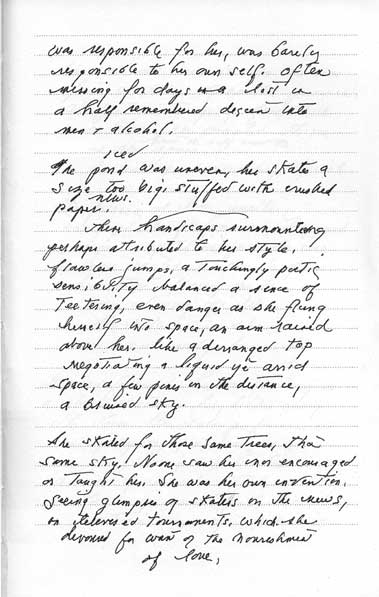 was responsible for her, was barely
responsible to her own self. Often
missing for days in a lost in
a half remembered descent into
men + alcohol.
iced
The pond was uneven, her skate a
size too big, stuffed with crushed
news
paper.
These handicaps surmounting
perhaps attributed to her style.
flawless jumps, a touchingly poetic
sensibility balanced a sence of
teetering, even danger as she flung
herself into space, an arm raised
above her. like a deranged top
negotiating a liquid yet arrid
space, a few pines in the distance,
a bruised sky.
She skated for those same trees, tha
same sky. No one saw her nor encouraged
or taught her. She was her own invention.
Seeing glimpses of skaters on the news,
on televised tournaments. which she
devoured for want of the nourishment
of love,